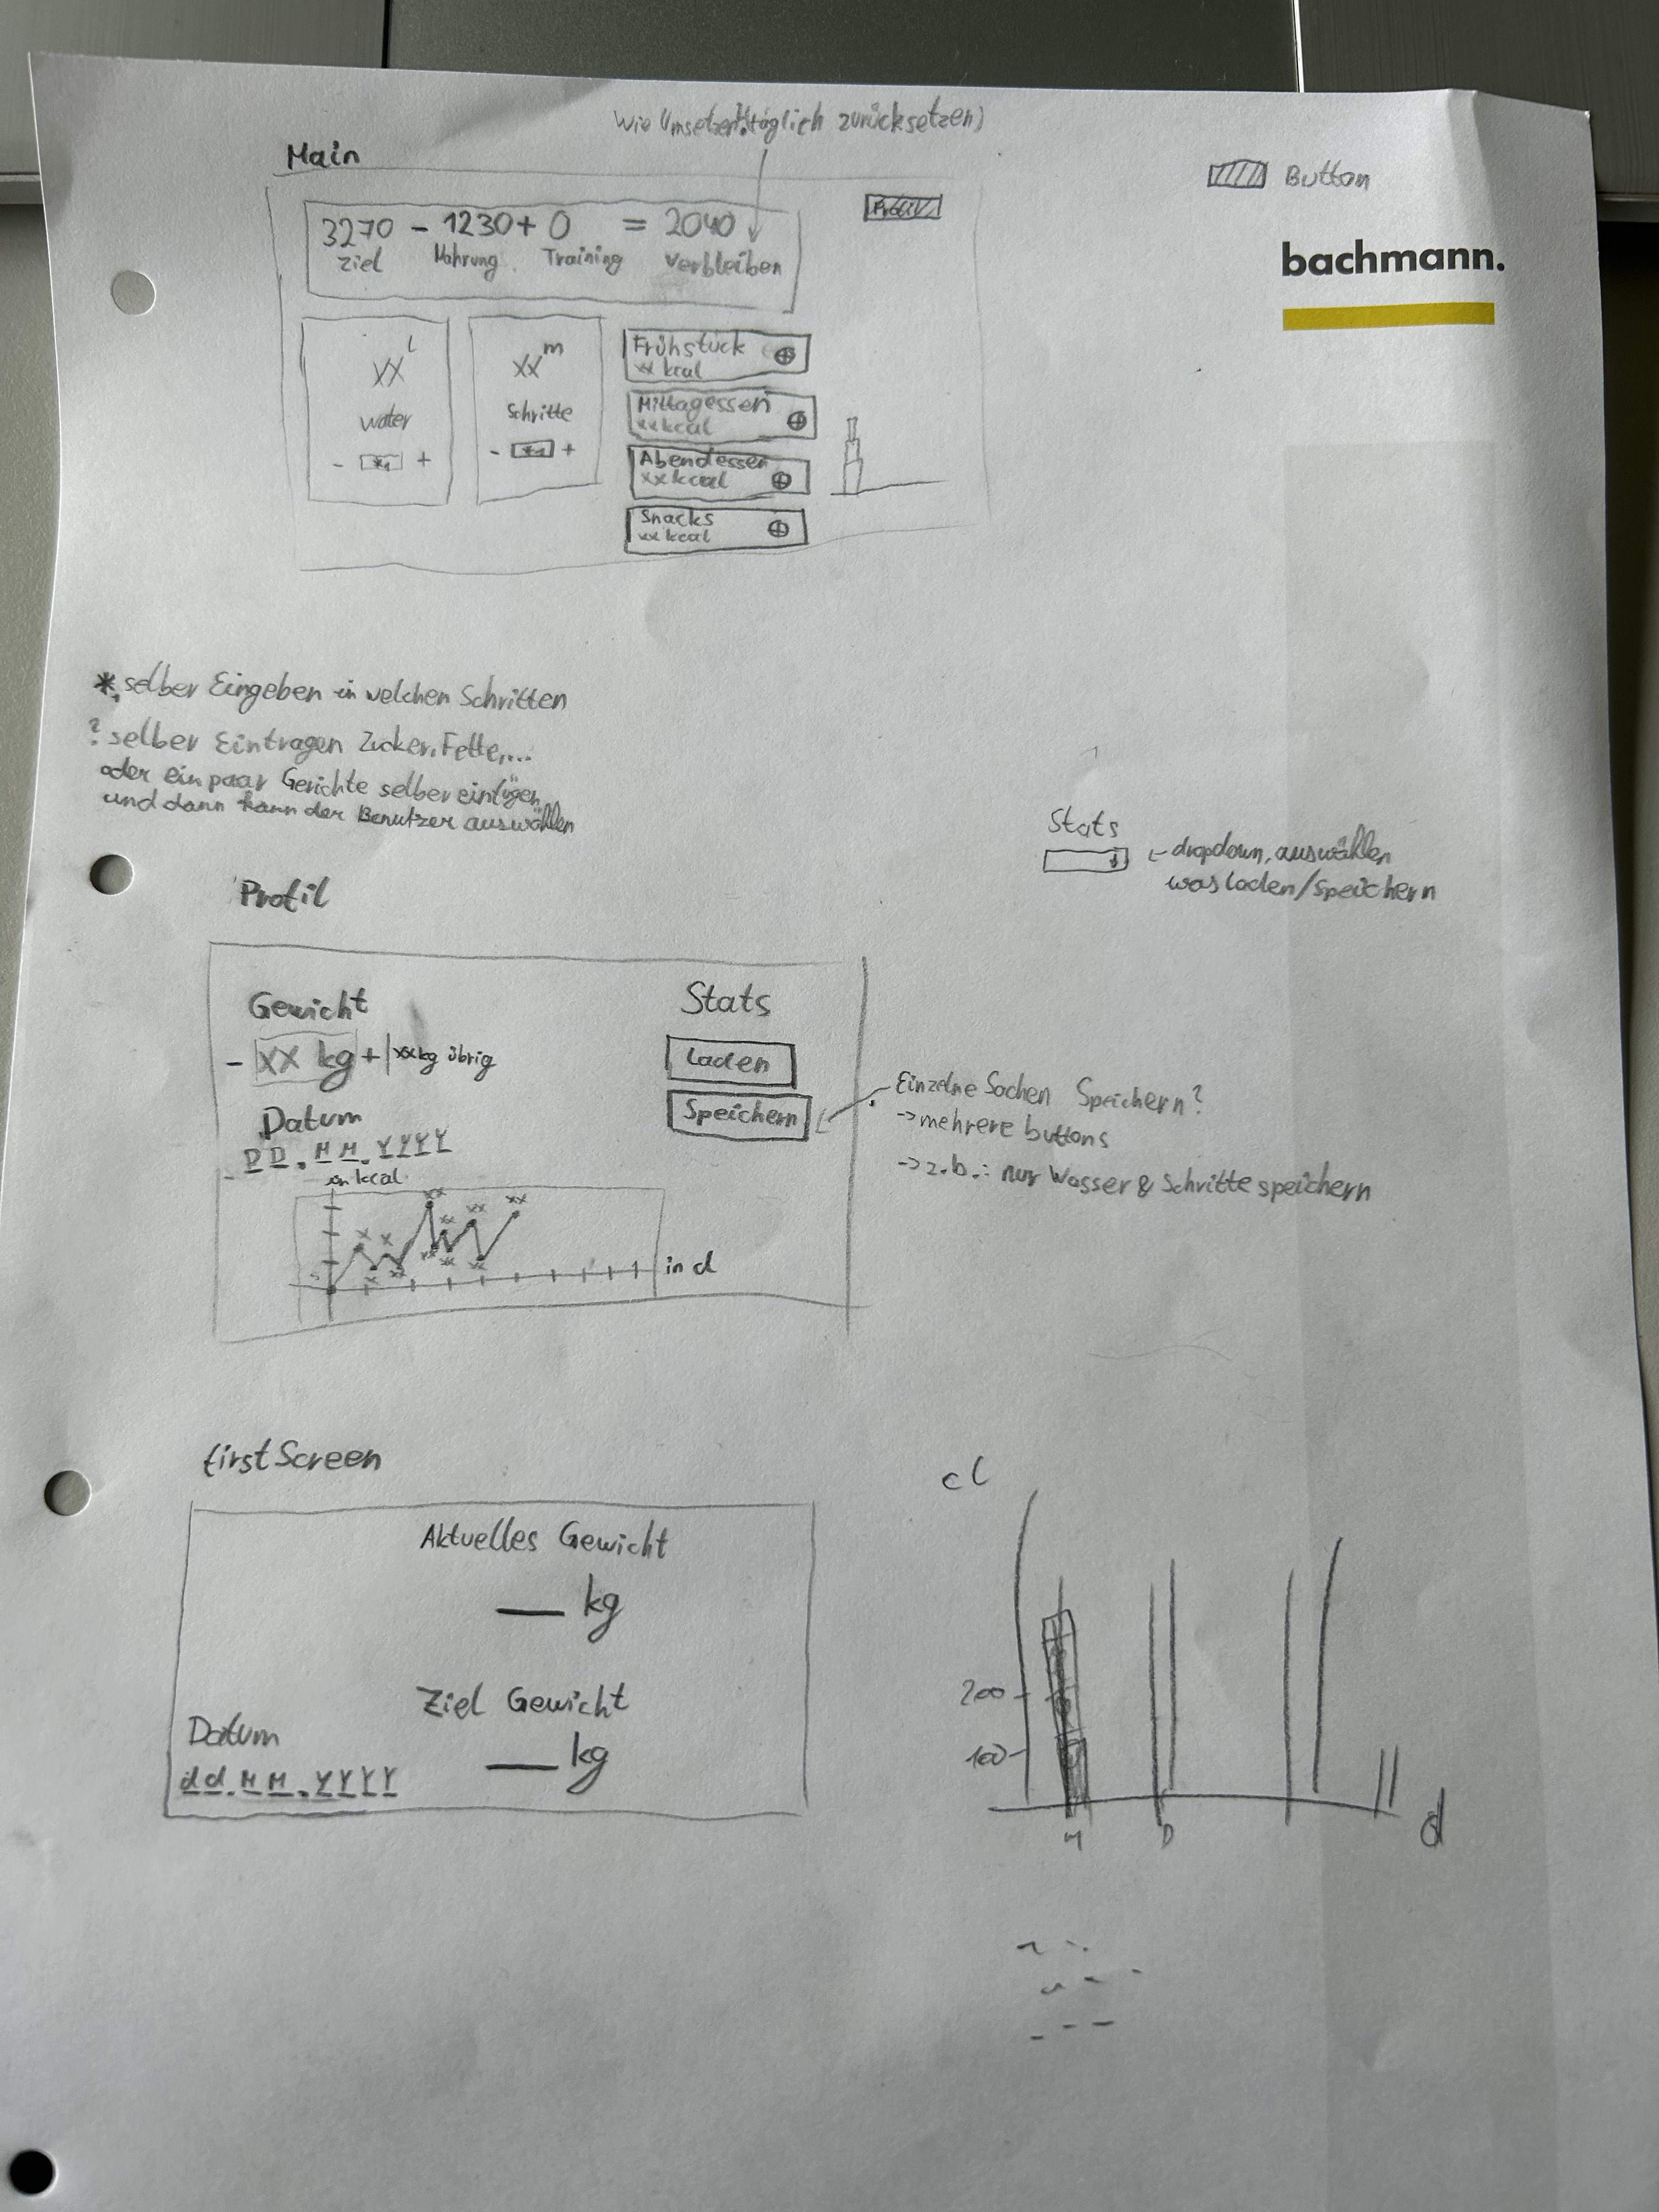 Wie Umsetzen? täglich zurücksetzen)
Main
Button
Profil
bachmann.
3270 - 1230 + 0 = 2040
Ziel Nahrung Training Verbleiben
xx l
water
- *1 +
xx m
Schritte
- *1 +
Frühstück
xx kcal
Mittagessen
xx kcal
Abendessen
xx kcal
Snacks
xx kcal
* selber Eingeben in welchen Schritten
? selber Eintragen Zucker, Fette,...
oder ein paar Gerichte selber einfügen
und dann kann der Benutzer auswählen
Stats
dropdown, auswählen
was laden/speichern
Profil
Gewicht
- xx kg + xx kg übrig
Datum
DD.MM.YYYY
in kcal
in d
Stats
Laden
Speichern
Einzelne Sachen Speichern?
-> mehrere buttons
-> z.b.: nur Wasser & Schritte speichern
firstScreen
Aktuelles Gewicht
__ kg
Ziel Gewicht
__ kg
Datum
dd.MM.YYYY
cl
200
100
M
D
d